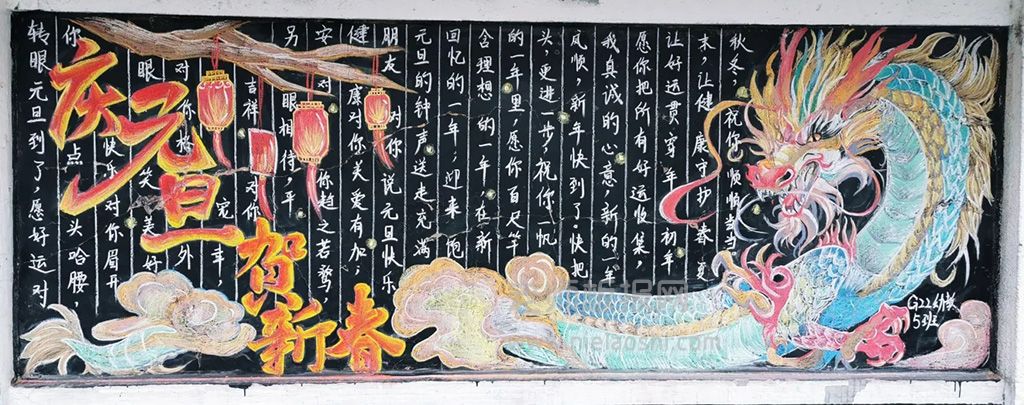 庆元旦
贺新春
转眼元旦到了，愿好运对
你点头哈腰，
快乐对你眉开
眼笑，美好
对你格外
宠幸，
吉祥对你
另眼相待，平
安对你趋之若鹜，
健康对你关爱有加；
朋友对你说元旦快乐
元旦的钟声送走充满
回忆的一年，迎来饱
含理想的一年，在新
的一年里，愿你百尺竿
头更进一步祝你一帆
风顺，新年快到了，快把
我真诚的心意，新的一年
愿你把所有好运收集，
让好运贯穿年初年
末，让健康守护春夏
秋冬，祝你顺顺当当
G22幼
5班